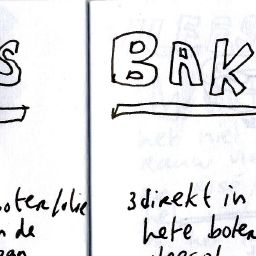 S
BAK
boterfolie
n de
3 direkt in
hete boter